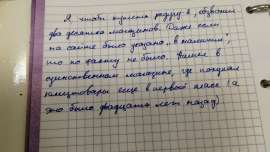 Я чтобы купить радугу, обзвонил
два десятка магазинов. Даже если
на сайте было указано „в наличии",
то по факту не было. Вышел в
единственном магазине, где покупал
канцтовары еще в первом класе (а
это было двадцать лет назад)